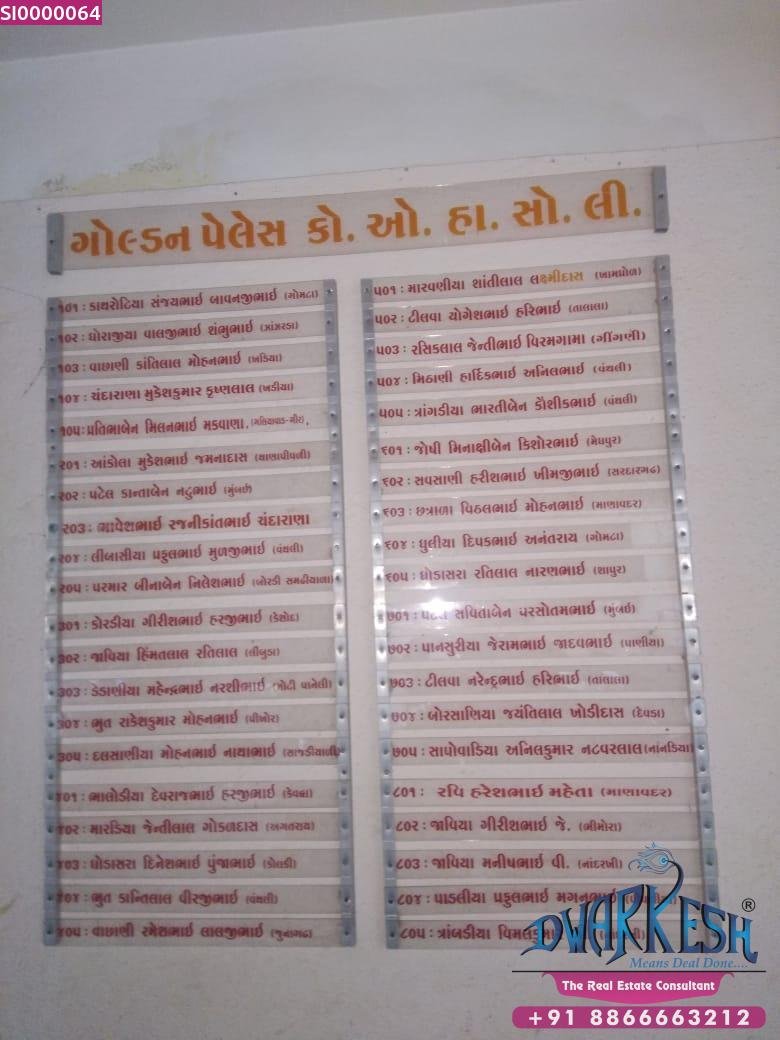 SI0000064
ગોલ્ડન પેલેસ કો. ઓ. હા. સો. લી.
૧૦૧ : કાથરોટિયા સંજયભાઈ બાવનજીભાઈ (ગોમટા)
૧૦૨ : ધોરાજીયા વાલજીભાઈ શંભુભાઈ (ઝાંઝરડા)
૧૦૩ : વાછાણી કાંતિલાલ મોહનભાઈ (ખડિયા)
૧૦૪ : ચંદારાણા મુકેશકુમાર કૃષ્ણલાલ (ખડીયા)
૧૦૫ : પ્રતિભાબેન મિલનભાઈ મકવાણા.
૨૦૧ : આંકોલા મુકેશભાઈ જમનાદાસ (થાણાપીપળી)
૨૦૨ : પટેલ કાન્તાબેન નટુભાઈ (મુંબઈ)
૨૦૩ : ભાવેશભાઈ રજનીકાંતભાઈ ચંદારાણા
૨૦૪ : લીબાસીયા પ્રફુલભાઈ મુળજીભાઈ (વંથલી)
૨૦૫ : પરમાર બીનાબેન નિલેશભાઈ (બોરડી સમઢીયાળા)
૩૦૧ : કોરડીયા ગીરીશભાઈ હરજીભાઈ (કેશોદ)
૩૦૨ : જાવિયા હિંમતલાલ રતિલાલ (લીંબુડા)
૩૦૩ : ડેડાણીયા મહેન્દ્રભાઈ નરશીભાઈ (મોટી પાનેલી)
૩૦૪ : ભુત રાકેશકુમાર મોહનભાઈ (પીખોર)
૩૦૫ : દલસાણીયા મોહનભાઈ નાથાભાઈ (સાજડીયાળી)
૪૦૧ : ભાલોડીયા દેવરાજભાઈ હરજીભાઈ (કેવદ્રા)
૪૦૨ : મારડિયા જેન્તીલાલ ગોકળદાસ (અગતરાય)
૪૦૩ : ધોડાસરા દિનેશભાઈ પુંજાભાઈ (કોલકી)
૪૦૪ : ભુત કાન્તિલાલ વીરજીભાઈ (વંથલી)
૪૦૫ : વાછાણી રમેશભાઈ લાલજીભાઈ (જુનાગઢ)
૫૦૧ : મારવણીયા શાંતીલાલ લક્ષ્મીદાસ (ખામધ્રોળ)
૫૦૨ : ટીલવા યોગેશભાઈ હરિભાઈ (તાલાલા)
૫૦૩ : રસિકલાલ જેન્તીભાઈ વિરમગામા (ગીંગણી)
૫૦૪ : મિઠાણી હાર્દિકભાઈ અનિલભાઈ (વંથલી)
૫૦૫ : ત્રાંગડીયા ભારતીબેન કૌશીકભાઈ (વંથલી)
૬૦૧ : જોષી મિનાક્ષીબેન કિશોરભાઈ (મેઘપુર)
૬૦૨ : સવસાણી હરીશભાઈ ખીમજીભાઈ (સરદારગઢ)
૬૦૩ : છત્રાળા વિઠલભાઈ મોહનભાઈ (માણાવદર)
૬૦૪ : ધુલીયા દિપકભાઈ અનંતરાય (ગોમટા)
૬૦૫ : ધોડાસરા રતિલાલ નારણભાઈ (શાપુર)
૭૦૧ : પટેલ સવિતાબેન પરસોતમભાઈ (મુંબઈ)
૭૦૨ : પાનસુરીયા જેરામભાઈ જાદવભાઈ (પાણીયા)
૭૦૩ : ટીલવા નરેન્દ્રભાઈ હરિભાઈ (તાલાલા)
૭૦૪ : બોરસાણિયા જયંતિલાલ ખોડીદાસ (દેવડા)
૭૦૫ : સાપોવાડિયા અનિલકુમાર નટવરલાલ (નાનડિયા)
૮૦૧ : રવિ હરેશભાઈ મહેતા (માણાવદર)
૮૦૨ : જાવિયા ગીરીશભાઈ જે. (ભીમોરા)
૮૦૩ : જાવિયા મનીષભાઈ વી. (નાંદરખી)
૮૦૪ : પાડલીયા પ્રફુલભાઈ મગનભાઈ
૮૦૫ : ત્રાંબડીયા વિમલકુમાર
DWARKESH®
Means Deal Done....
The Real Estate Consultant
+91 8866663212